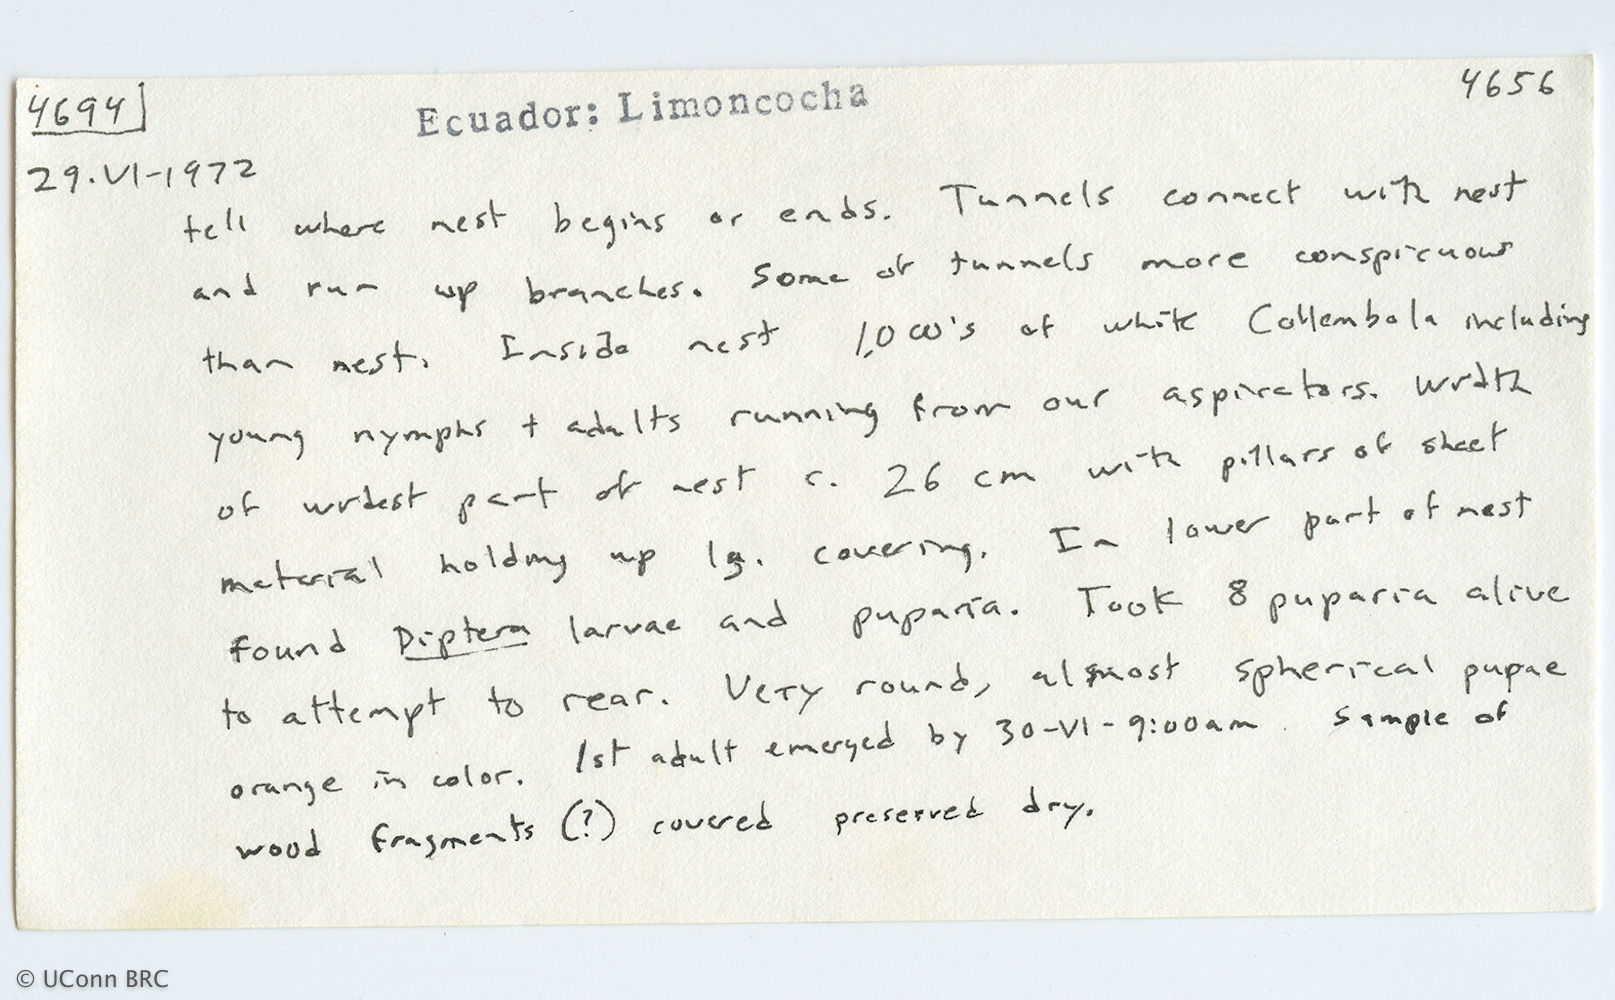 4694
Ecuador: Limoncocha
4656
29-VI-1972
tell where nest begins or ends. Tunnels connect with nest
and run up branches. Some of tunnels more conspicuous
than nest. Inside nest 1,000's of white Collembola including
young nymphs + adults running from our aspirators. Width
of widest part of nest c. 26 cm with pillars of sheet
material holding up lg. covering. In lower part of nest
found Diptera larvae and puparia. Took 8 puparia alive
to attempt to rear. Very round, almost spherical pupae
orange in color. 1st adult emerged by 30-VI-9:00am. Sample of
wood fragments (?) covered preserved dry.
© UConn BRC